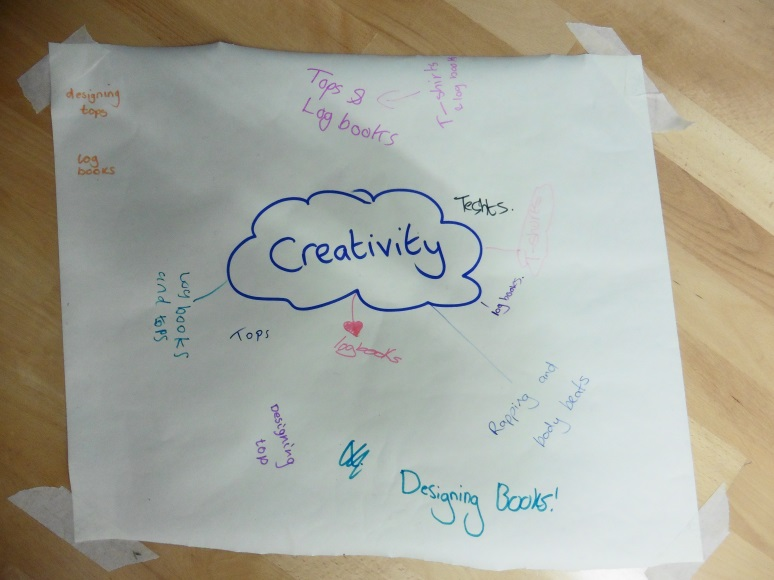 designing
tops
log
books
Tops &
Log books
T-shirts
& log books
Creativity
T-shirts
logbooks.
Log books
and tops
Tops
logbooks
Rapping and
body beats
Designing
Designing Books!